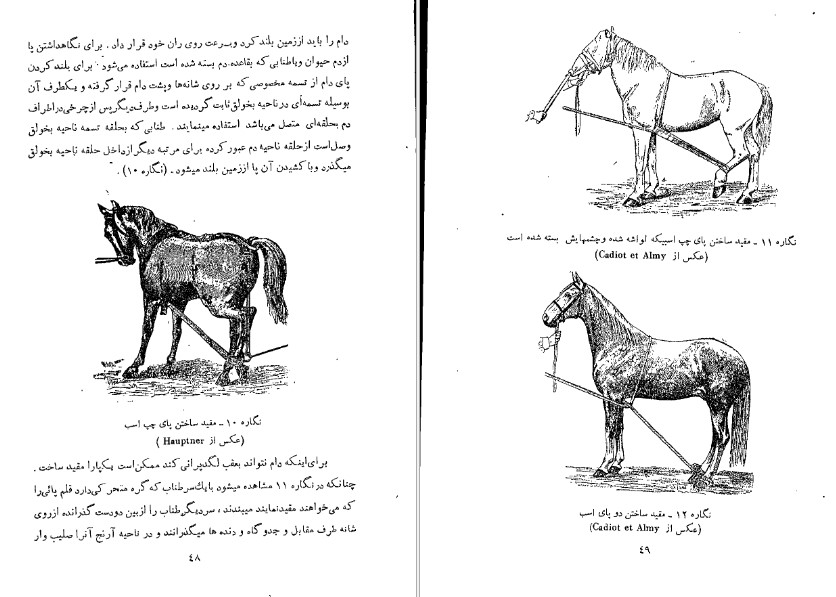 دام را باید اززمین بلند کرد وبسرعت روی ران خود قرار داد. برای نگاهداشتن پا
ازدم حیوان وباطنابی که بقاعده دم بسته شده است استفاده می‌شود برای بلند کردن
پای دام از تسمه مخصوصی که بر روی شانه‌ها وپشت دام قرار گرفته و یکطرف آن
بوسیله تسمه‌ای در ناحیه بخولق ثابت گردیده است وطرف دیگر پس ازچرخی در اطراف
دم بحلقه‌ای متصل می‌باشد استفاده مینمایند. طنابی که بحلقه تسمه ناحیه بخولق
وصل است از حلقه ناحیه دم عبور کرده برای مرتبه دیگر از داخل حلقه ناحیه بخولق
میگذرد وبا کشیدن آن پا اززمین بلند میشود. (نگاره ۱۰).
نگاره ۱۰ ـ مقید ساختن پای چپ اسب
(عکس از Hauptner)
برای اینکه دام نتواند بعقب لگدپرانی کند ممکن است یکپارا مقید ساخت.
چنانکه در نگاره ۱۱ مشاهده میشود بایک سر طناب که گره متحرکی دارد قلم پائی را
که می‌خواهند مقید نمایند میبندند، سر دیگر طناب را از بین دو دست گذرانده از روی
شانه طرف مقابل و جدو گاه و دنده ها میگذرانند و در ناحیه آرنج آنرا صلیب وار
۴۸
نگاره ۱۱ ـ مقید ساختن پای چپ اسبیکه لواشه شده وچشمهایش بسته شده است
(عکس از Cadiot et Almy)
نگاره ۱۲ ـ مقید ساختن دو پای اسب
(عکس از Cadiot et Almy)
۴۹